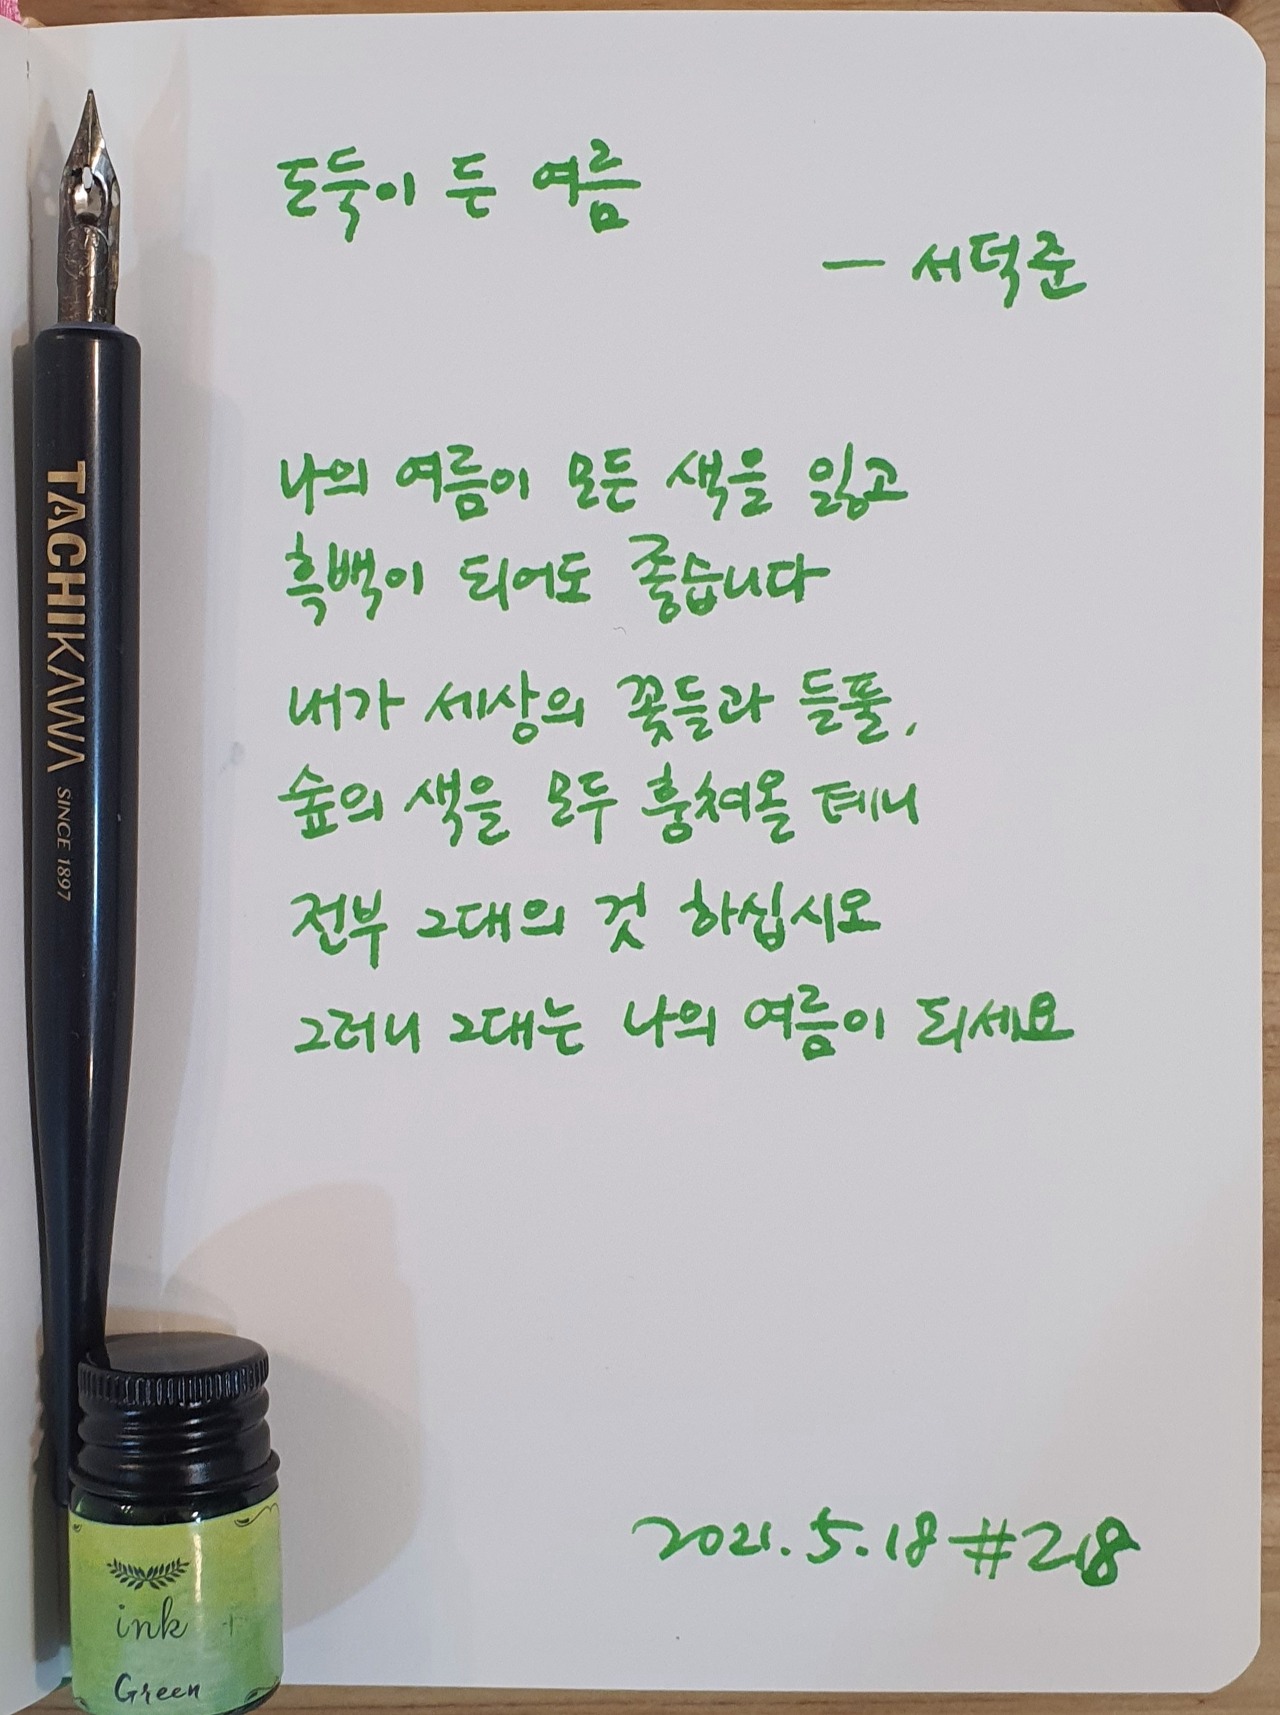 도둑이 든 여름
— 서덕준
나의 여름이 모든 색을 잃고
흑백이 되어도 좋습니다
내가 세상의 꽃들과 들풀,
숲의 색을 모두 훔쳐올 테니
전부 그대의 것 하십시오
그러니 그대는 나의 여름이 되세요
2021.5.18 #218
TACHIKAWA SINCE 1897
ink
Green